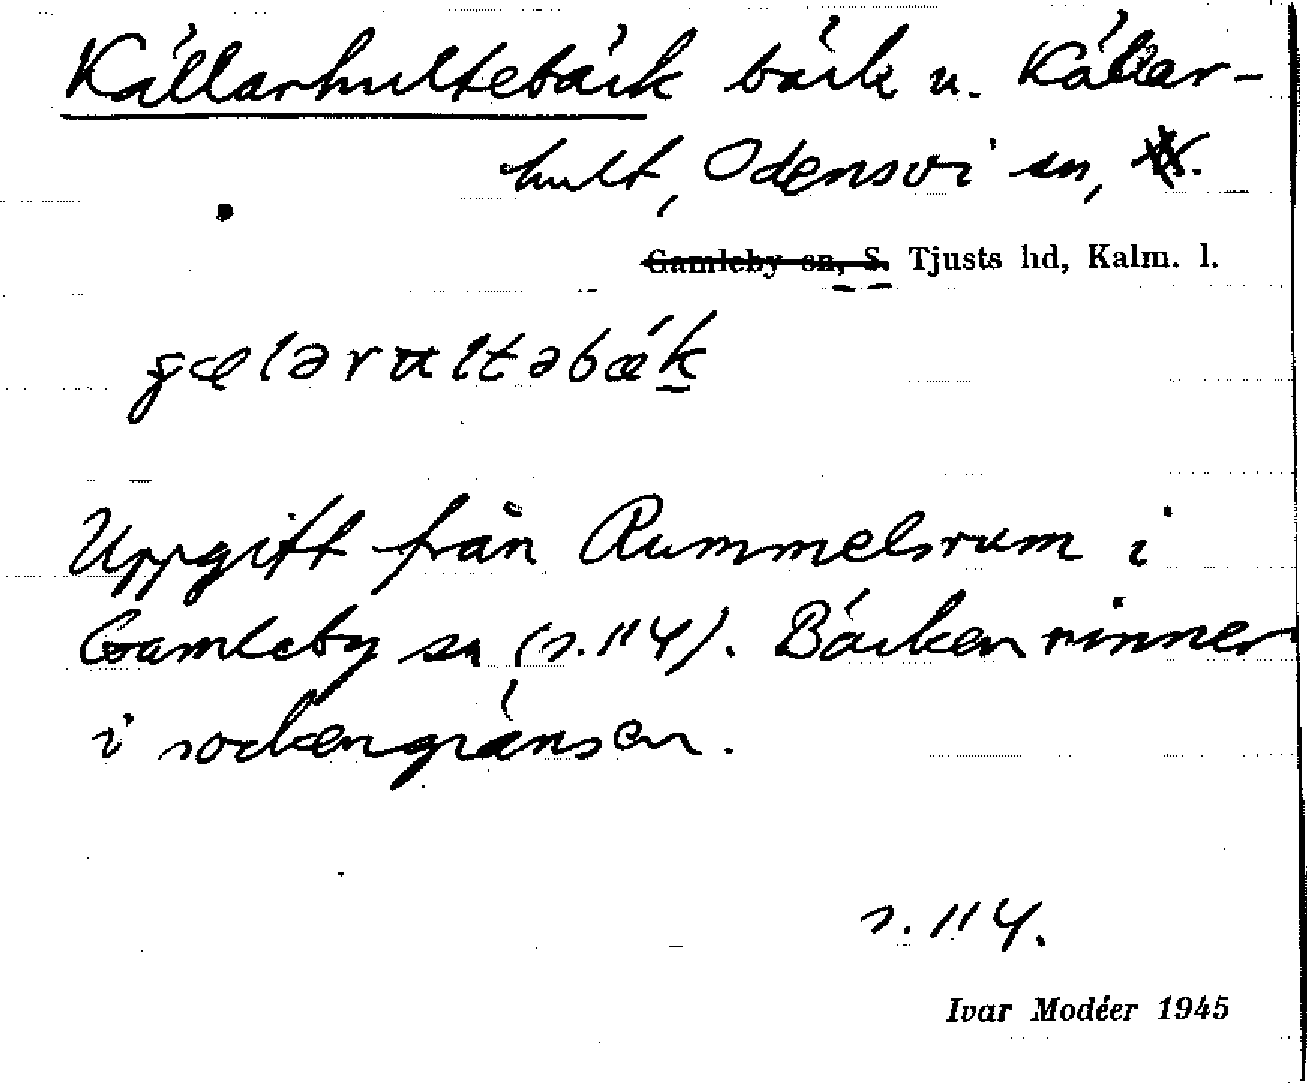 Källarhultebäck bäck u. Källar-
hult, Odensvi sn, N.
Gamleby sn, S. Tjusts hd, Kalm. l.
Uppgift från Rummelsrum i
Gamleby sn (s. 114). Bäcken rinner
i sockengränsen.
s. 114.
Ivar Modéer 1945